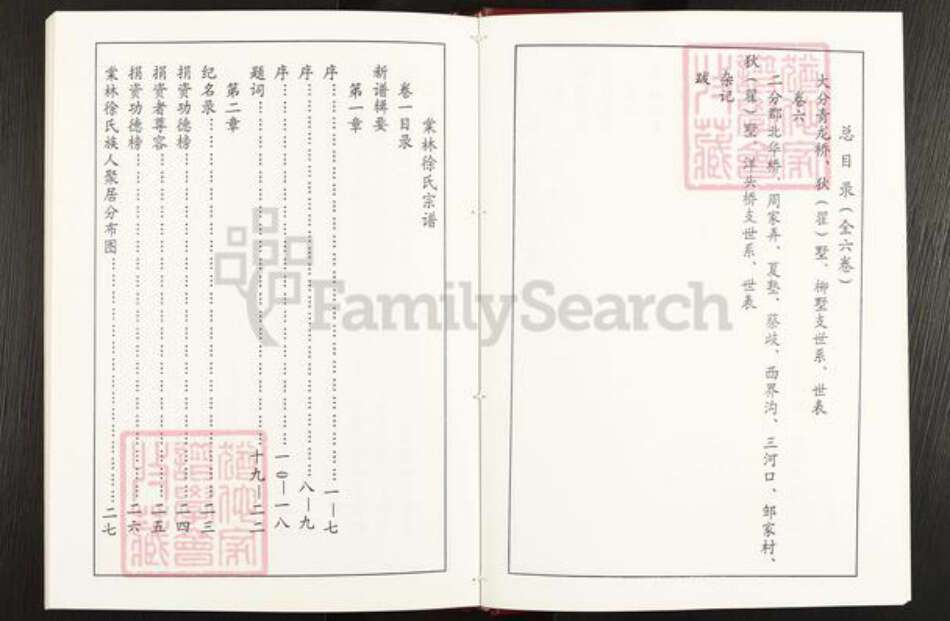 总目录(全六卷)
大分青龙桥、狄(翟)墅、柳墅支世系、世表
卷六
二分鄀北华桥、周家弄、夏墅、蔡歧、西界沟、三河口、邹家村、
狄(翟)墅洋尖桥支世系、世表
杂记
跋
枼林徐氏宗谱
卷一目录
新谱辑要
第一章
序……一—七
序……八—九
序……一0—一八
题词……十九—二二
第二章
纪名录……二三
捐资功德榜……二四
捐资者尊容……二五
捐资功德榜……二六
枼林徐氏族人聚居分布图……二七
FamilySearch